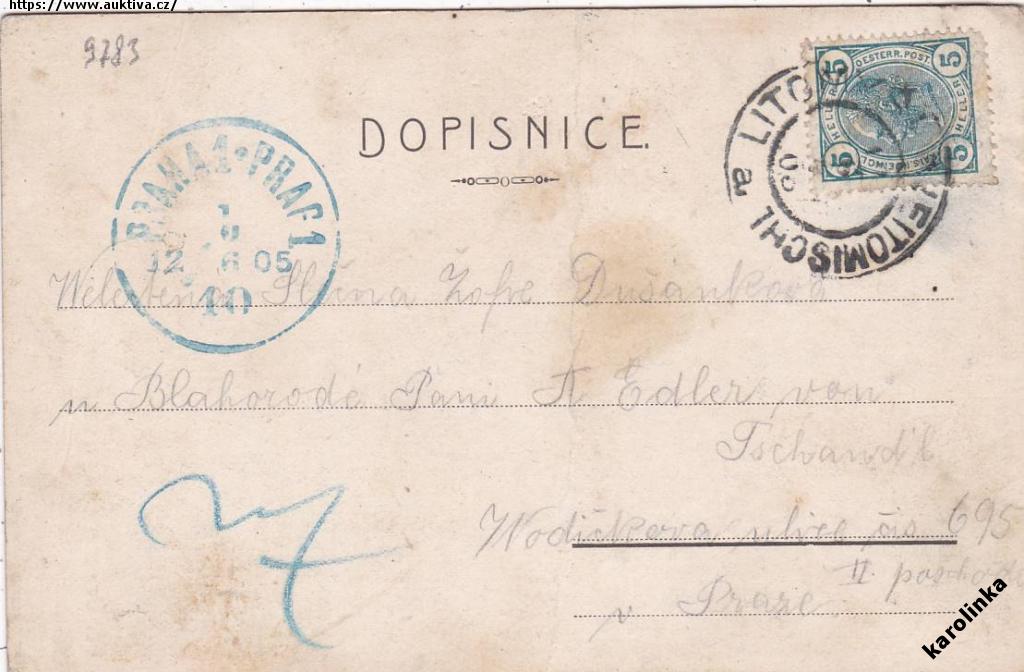 https://www.auktiva.cz/
9783
5 OESTERR. POST. 5
HELLER HELLER
5 5
LITO
LEITOMISCHL
a
05
DOPISNICE.
PRAHA 1 * PRAG 1
12 6 05
10
Slečna Žofie Dušánkova
u Blahorodé Paní A Edler von
Tschandl
Wodičkova ulice čís 695
II. poschodí
v Praze
karolinka